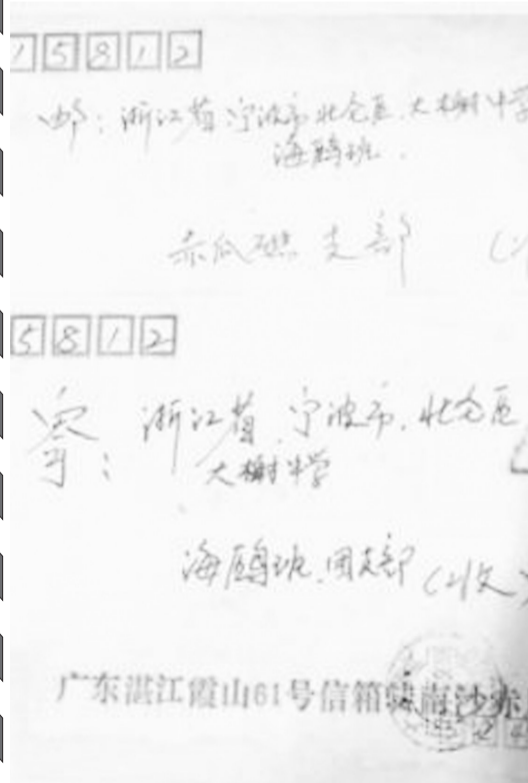 15812
邮：浙江省宁波市北仑区．大榭中学
海鸥班．
赤瓜礁 支部
5812
寄：浙江省 宁波市．北仑区
大榭中学
海鸥班．团支部（收）
广东湛江霞山61号信箱 南沙赤